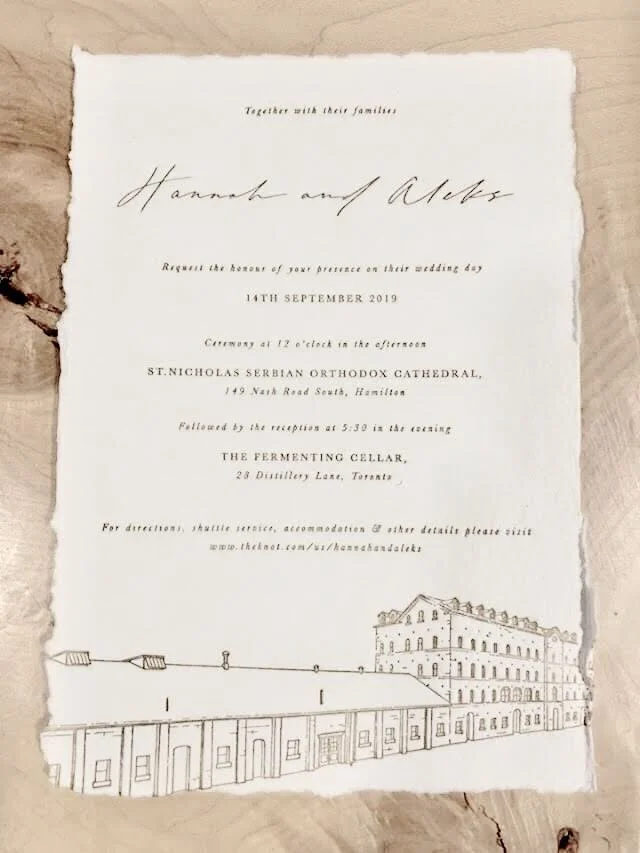 Together with their families
Hannah and Aleks
Request the honour of your presence on their wedding day
14TH SEPTEMBER 2019
Ceremony at 12 o'clock in the afternoon
ST.NICHOLAS SERBIAN ORTHODOX CATHEDRAL,
149 Nash Road South, Hamilton
Followed by the reception at 5:30 in the evening
THE FERMENTING CELLAR,
28 Distillery Lane, Toronto
For directions, shuttle service, accommodation & other details please visit
www.theknot.com/us/hannahandaleks